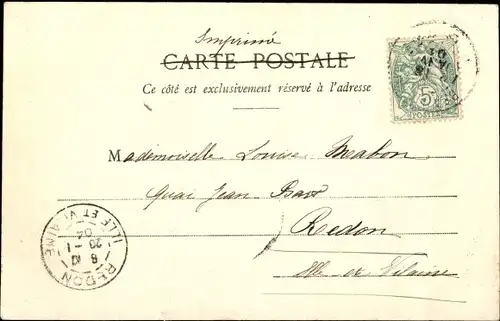 Imprimé
CARTE POSTALE
Ce côté est exclusivement réservé à l'adresse
Mademoiselle Louise Mabon
Quai Jean Bart
Redon
Ille et Vilaine
5c
POSTES
REDON
ILLE ET VILAINE
20 - 1
04